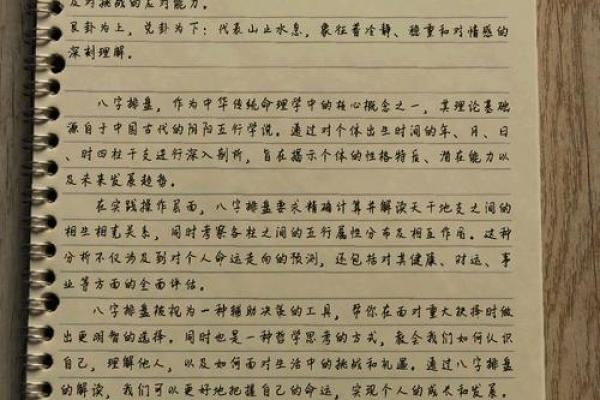 及对挑战的应对能力。
艮卦为上，兑卦为下：代表山止水息，象征着冷静、稳重和对情感的
深刻理解。
八字排盘，作为中华传统命理学中的核心概念之一，其理论基础
源自于中国古代的阴阳五行学说。通过对个体出生时间的年、月、日
、时四柱干支进行深入剖析，旨在揭示个体的性格特点、潜在能力以
及未来发展趋势。
在实践操作层面，八字排盘要求精确计算并解读天干地支之间的
相生相克关系，同时考察各柱之间的五行属性分布及相互作用。这种
分析不仅涉及到对个人命运走向的预测，还包括对其健康、财运、事
业等方面的全面评估。
八字排盘被视为一种辅助决策的工具，帮你在面对重大抉择时做
出更明智的选择。同时也是一种哲学思考的方式，教会我们如何认识
自己，理解他人，以及如何面对生活中的挑战和机遇。通过八字排盘
的解读，我们可以更好地把握自己的命运，实现个人的成长和发展。